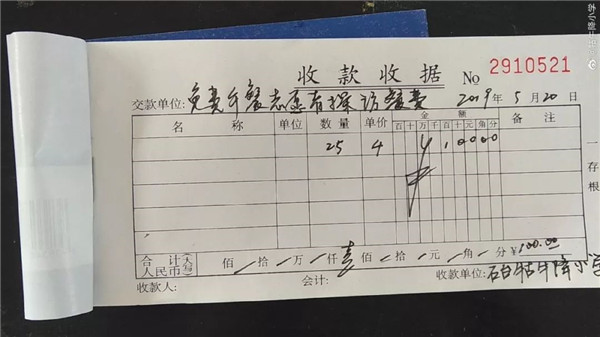 收款收据 No 2910521
交款单位: 免费午餐志愿者探访餐费 2019年5月20日
名 称 单位 数量 单价 金额 备注
百十万千百十元角分
25 4 ¥10000
一存根
合计(大写)人民币 佰/拾/万/仟壹佰/拾/元/角/分 ¥100.00
收款人: 会计: 收款单位: